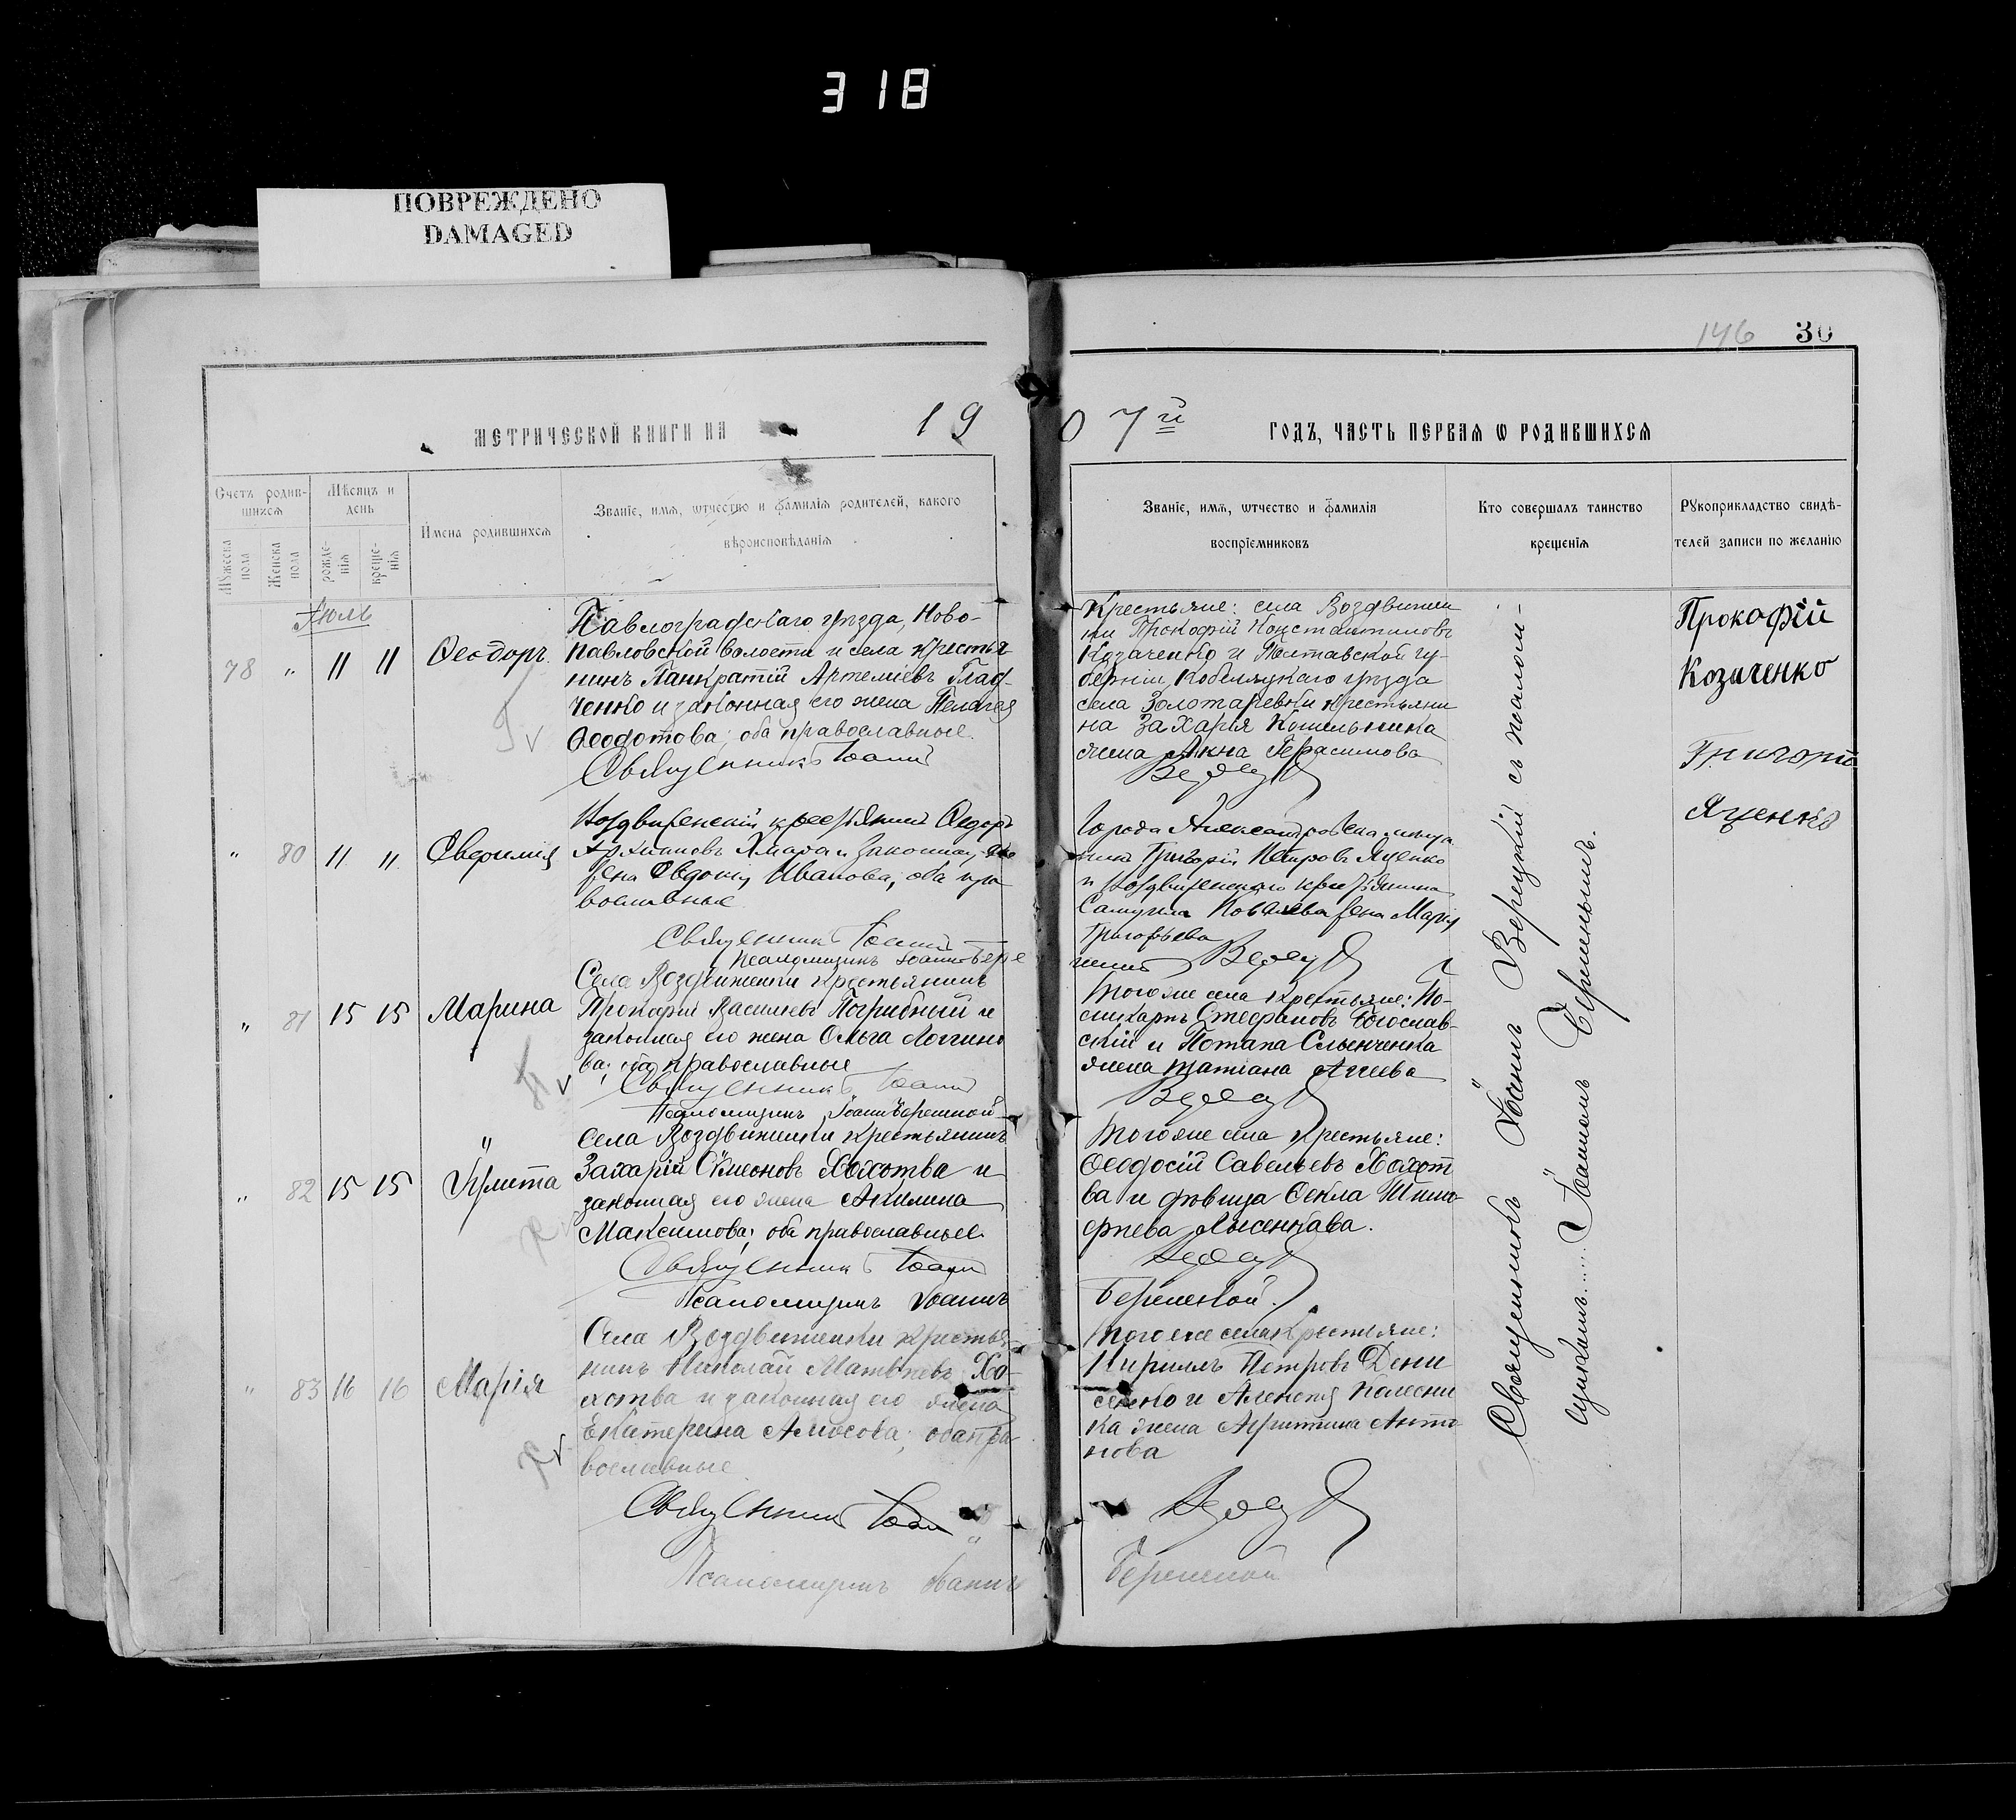 318
ПОВРЕЖДЕНО
DAMAGED
146 30
МЕТРИЧЕСКОЙ КНИГИ НА 1907й ГОДЪ, ЧАСТЬ ПЕРВАЯ Ѡ РОДИВШИХСЯ
Счетъ родив-
шихся
Мѣсяцъ и
день
Имена родившихся
Званіе, имя, ѿчество и фамилія родителей, какого
вѣроисповѣданія
Мужеска пола
Женска пола
рожде-
нія
креще-
нія
Званіе, имя, ѿчество и фамилія
воспріемниковъ
Кто совершалъ таинство
крещенія
Рукоприкладство свидѣ-
телей записи по желанію
Іюль
78 " 11 11 Ѳеодоръ
Павлоградскаго уѣзда, Ново-
павловской волости и села крестья
нинъ Панкратій Артеміевъ Глад-
ченко и законная его жена Пелагея
Ѳеодотова; оба православные.
Священникъ Іоаннъ
Крестьяне: села Воздвижен
ки Прокофій Константиновъ
Козаченко и Полтавской гу-
берніи Кобеляцкаго уѣзда
села Золотаревки крестьяни
на Захарія Кошельника
жена Анна Герасимова
Верецкій
Прокофій
Козаченко
" 80 11 11 Евфимія
Воздвиженскій крестьянинъ Ѳедоръ
законная его
жена Евдокія Иванова, оба пра
вославные
Священникъ Іоаннъ
Псаломщикъ Іоаннъ Бере
Города Александровска мѣща
нинъ Григорій Петровъ Яценко
и Воздвиженскаго крестьянина
Самуила Ковалева жена Марія
Григорьева
жной Верецкій
Григорій
Яценко
" 81 15 15 Марина
Села Воздвиженки крестьянинъ
Прокофій Васильевъ Погрибный и
законная его жена Ольга Логгино
ва; оба православные
Священникъ Іоаннъ
Псаломщикъ Іоаннъ Бережной
Того же села крестьяне: По-
ликарпъ Стефановъ Богослав-
скій и Потапа Слынченка
жена Татіана Агеева
Верецкій
" 82 15 15 Іулитта
Села Воздвиженки крестьянинъ
Захарій Сѵмеоновъ Хохотва и
законная его жена Акилина
Максимова; оба православные.
Священникъ Іоаннъ
Псаломщикъ Іоаннъ
Того же села крестьяне:
Ѳеодосій Савельевъ Хохот
ва и дѣвица Ѳекла Тимо-
фѣева Лысенкова.
Верецкій
Бережной.
" 83 16 16 Марія
Села Воздвиженки крестья-
нинъ Николай Матвѣевъ Хо-
хотва и законная его жена
Екатерина Амосова; оба пра-
вославные
Священникъ Іоаннъ
Псаломщикъ Іоаннъ
Того же села крестьяне:
Кириллъ Петровъ Дени
сенко и Алексѣя Колесни
ка жена Анто
нова
Верецкій
Бережной
Священникъ Іоаннъ Верецкій съ псалом-
щикомъ Іоанномъ Бережнымъ.